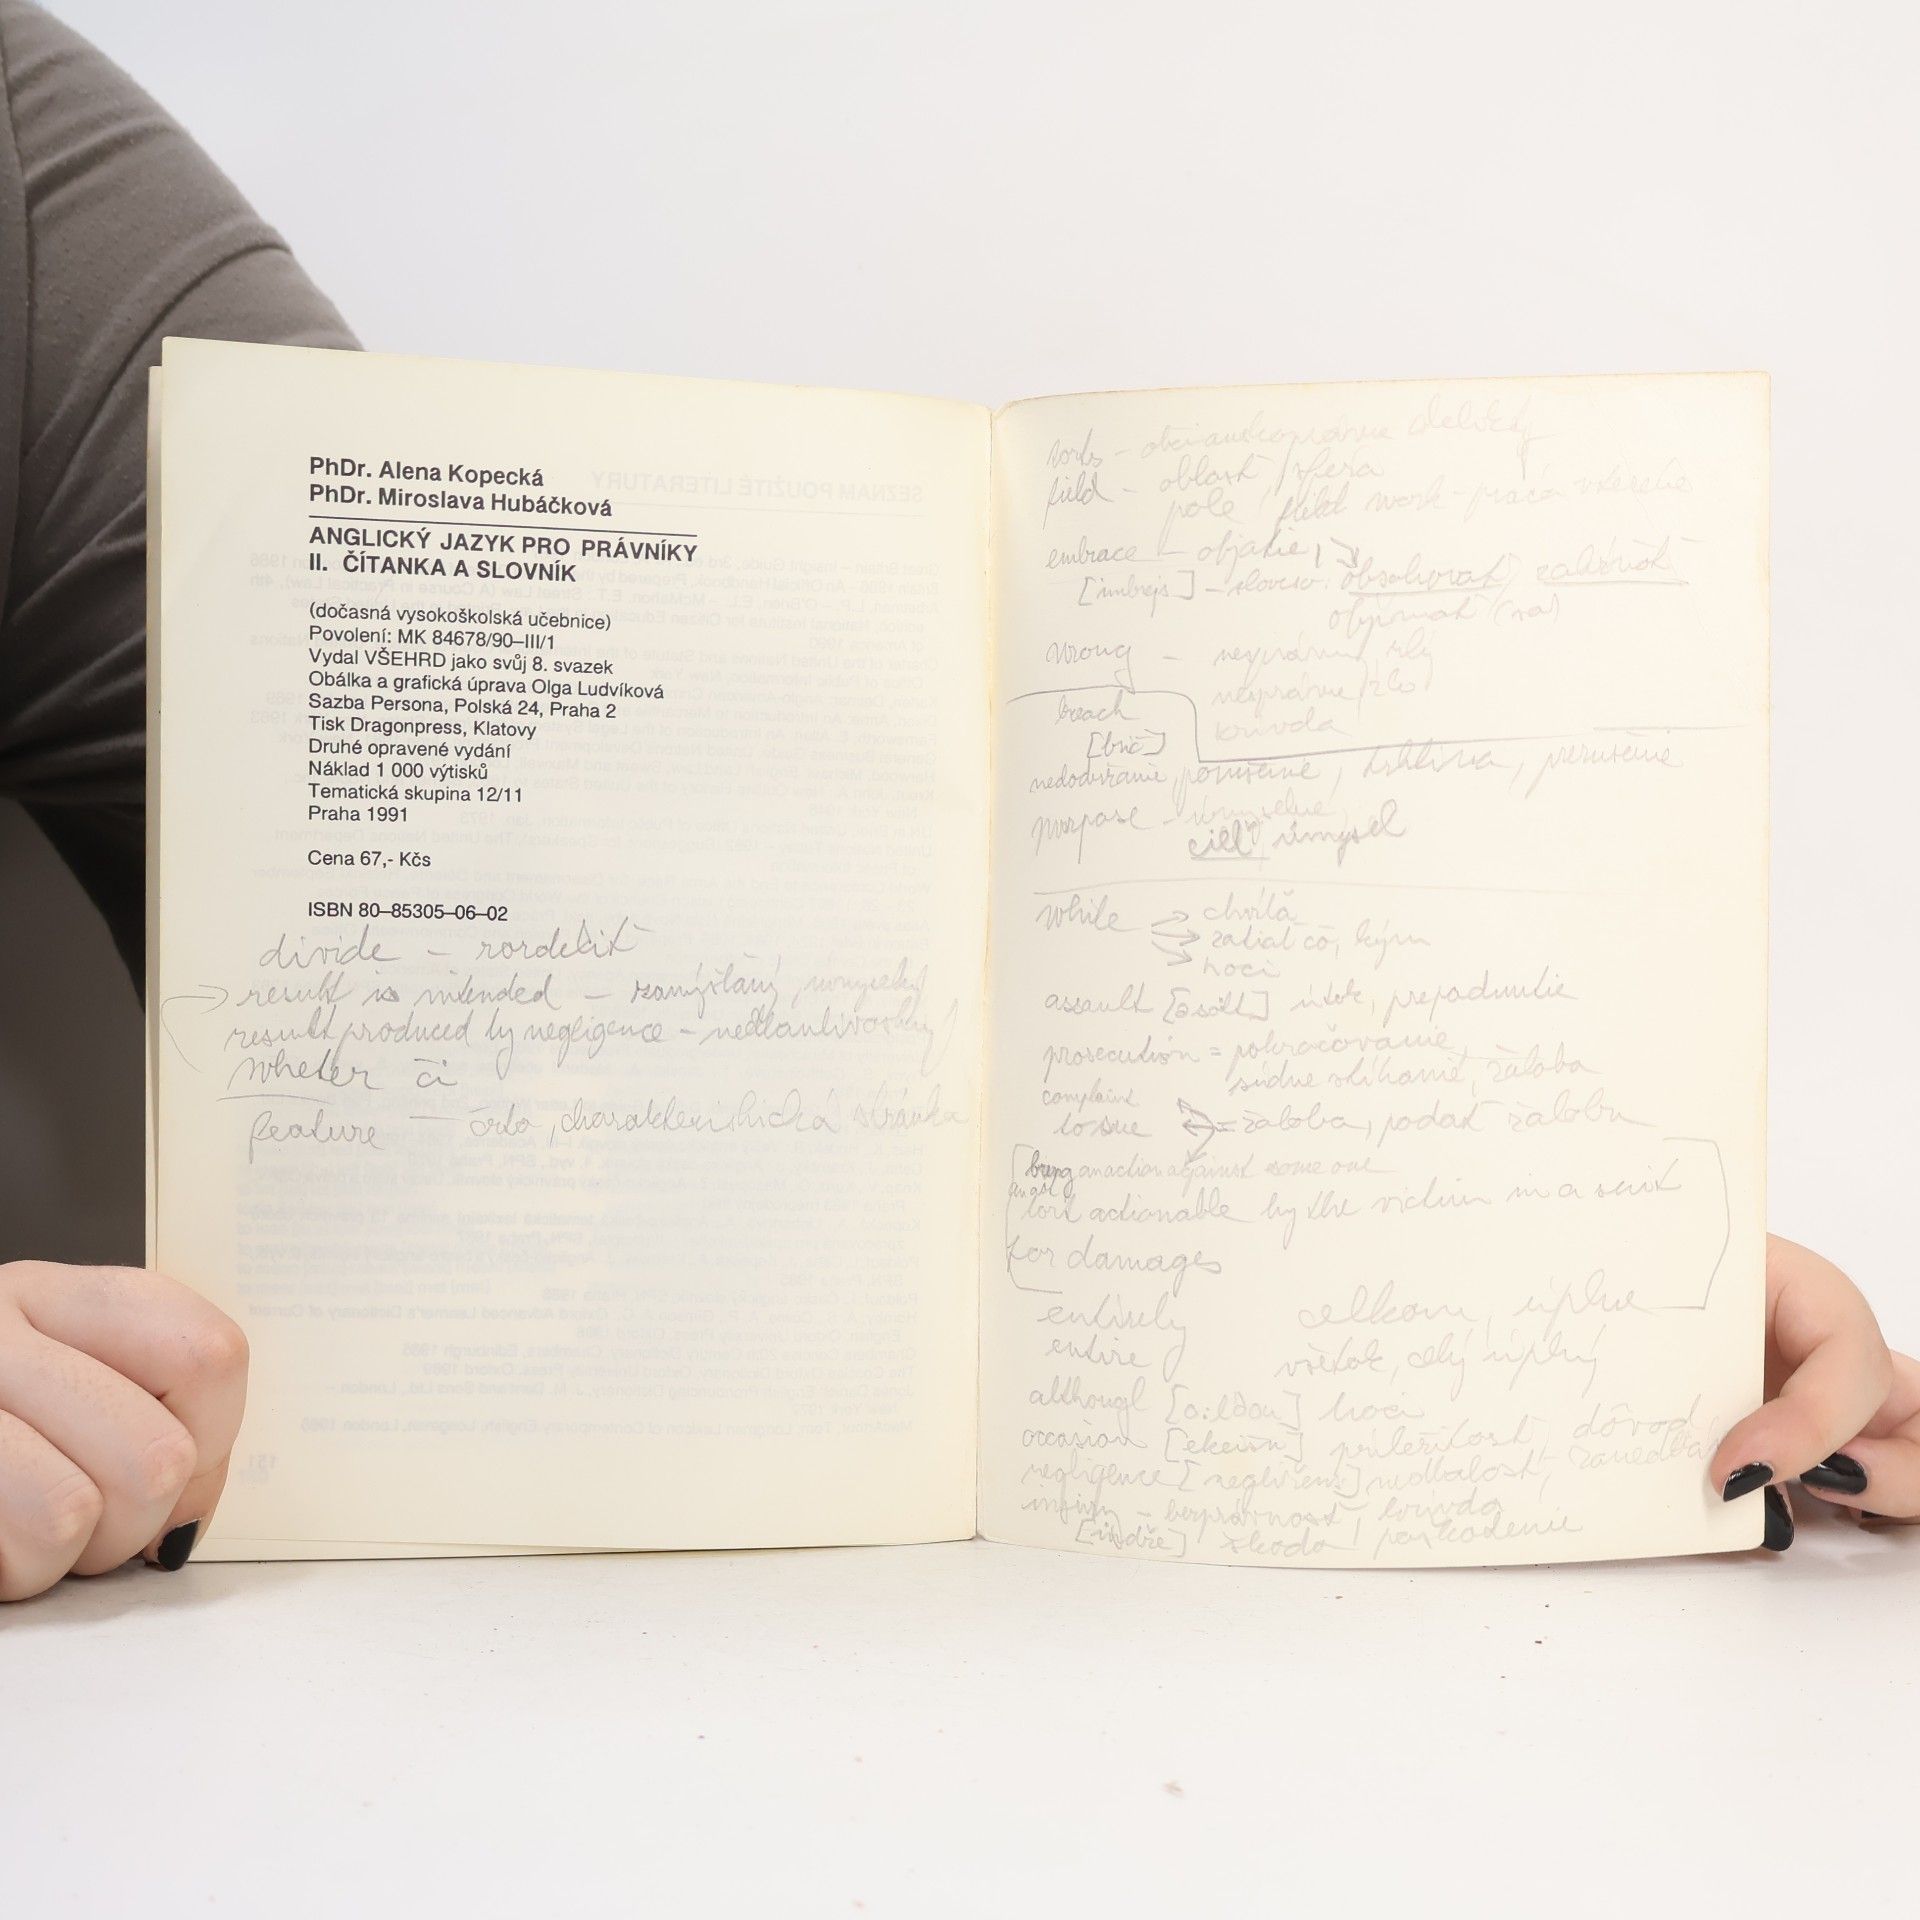 PhDr. Alena Kopecká
PhDr. Miroslava Hubáčková
ANGLICKÝ JAZYK PRO PRÁVNÍKY
II. ČÍTANKA A SLOVNÍK
(dočasná vysokoškolská učebnice)
Povolení: MK 84678/90–III/1
Vydal VŠEHRD jako svůj 8. svazek
Obálka a grafická úprava Olga Ludvíková
Sazba Persona, Polská 24, Praha 2
Tisk Dragonpress, Klatovy
Druhé opravené vydání
Náklad 1 000 výtisků
Tematická skupina 12/11
Praha 1991
Cena 67,- Kčs
ISBN 80–85305–06–02
divide – rozdeliť
result is intended – zamýšľaný, úmyselný
result produced by negligence – nedbanlivostný
wheter či
feature – črta, charakteristická stránka
torts – občianskoprávne delikty
field – oblasť, sféra
pole, field work – práca v teréne
embrace – objatie,
[imbrejs] – sloveso: obsahovať, zahŕňať
objímať (sa)
wrong – nesprávny, zlý
nesprávne, zlo
krivda
breach
[bríč]
nedodržanie, porušenie, trhlina, prerušenie
purpose – úmyselne,
cieľ, úmysel
while chvíľa
zatiaľ čo, kým
hoci
assault [əsólt] útok, prepadnutie
prosecution = pokračovanie,
súdne stíhanie, žaloba
complaint
to sue = žaloba, podať žalobu
bring an action against some one
tort actionable by the victim in a suit
for damages
entirely celkom, úplne
entire všetok, celý úplný
althougl [o:lðou] hoci
occasion príležitosť, dôvod
negligence nedbalosť,
injury – bezprávnosť, krivda
[indže] škoda, poškodenie